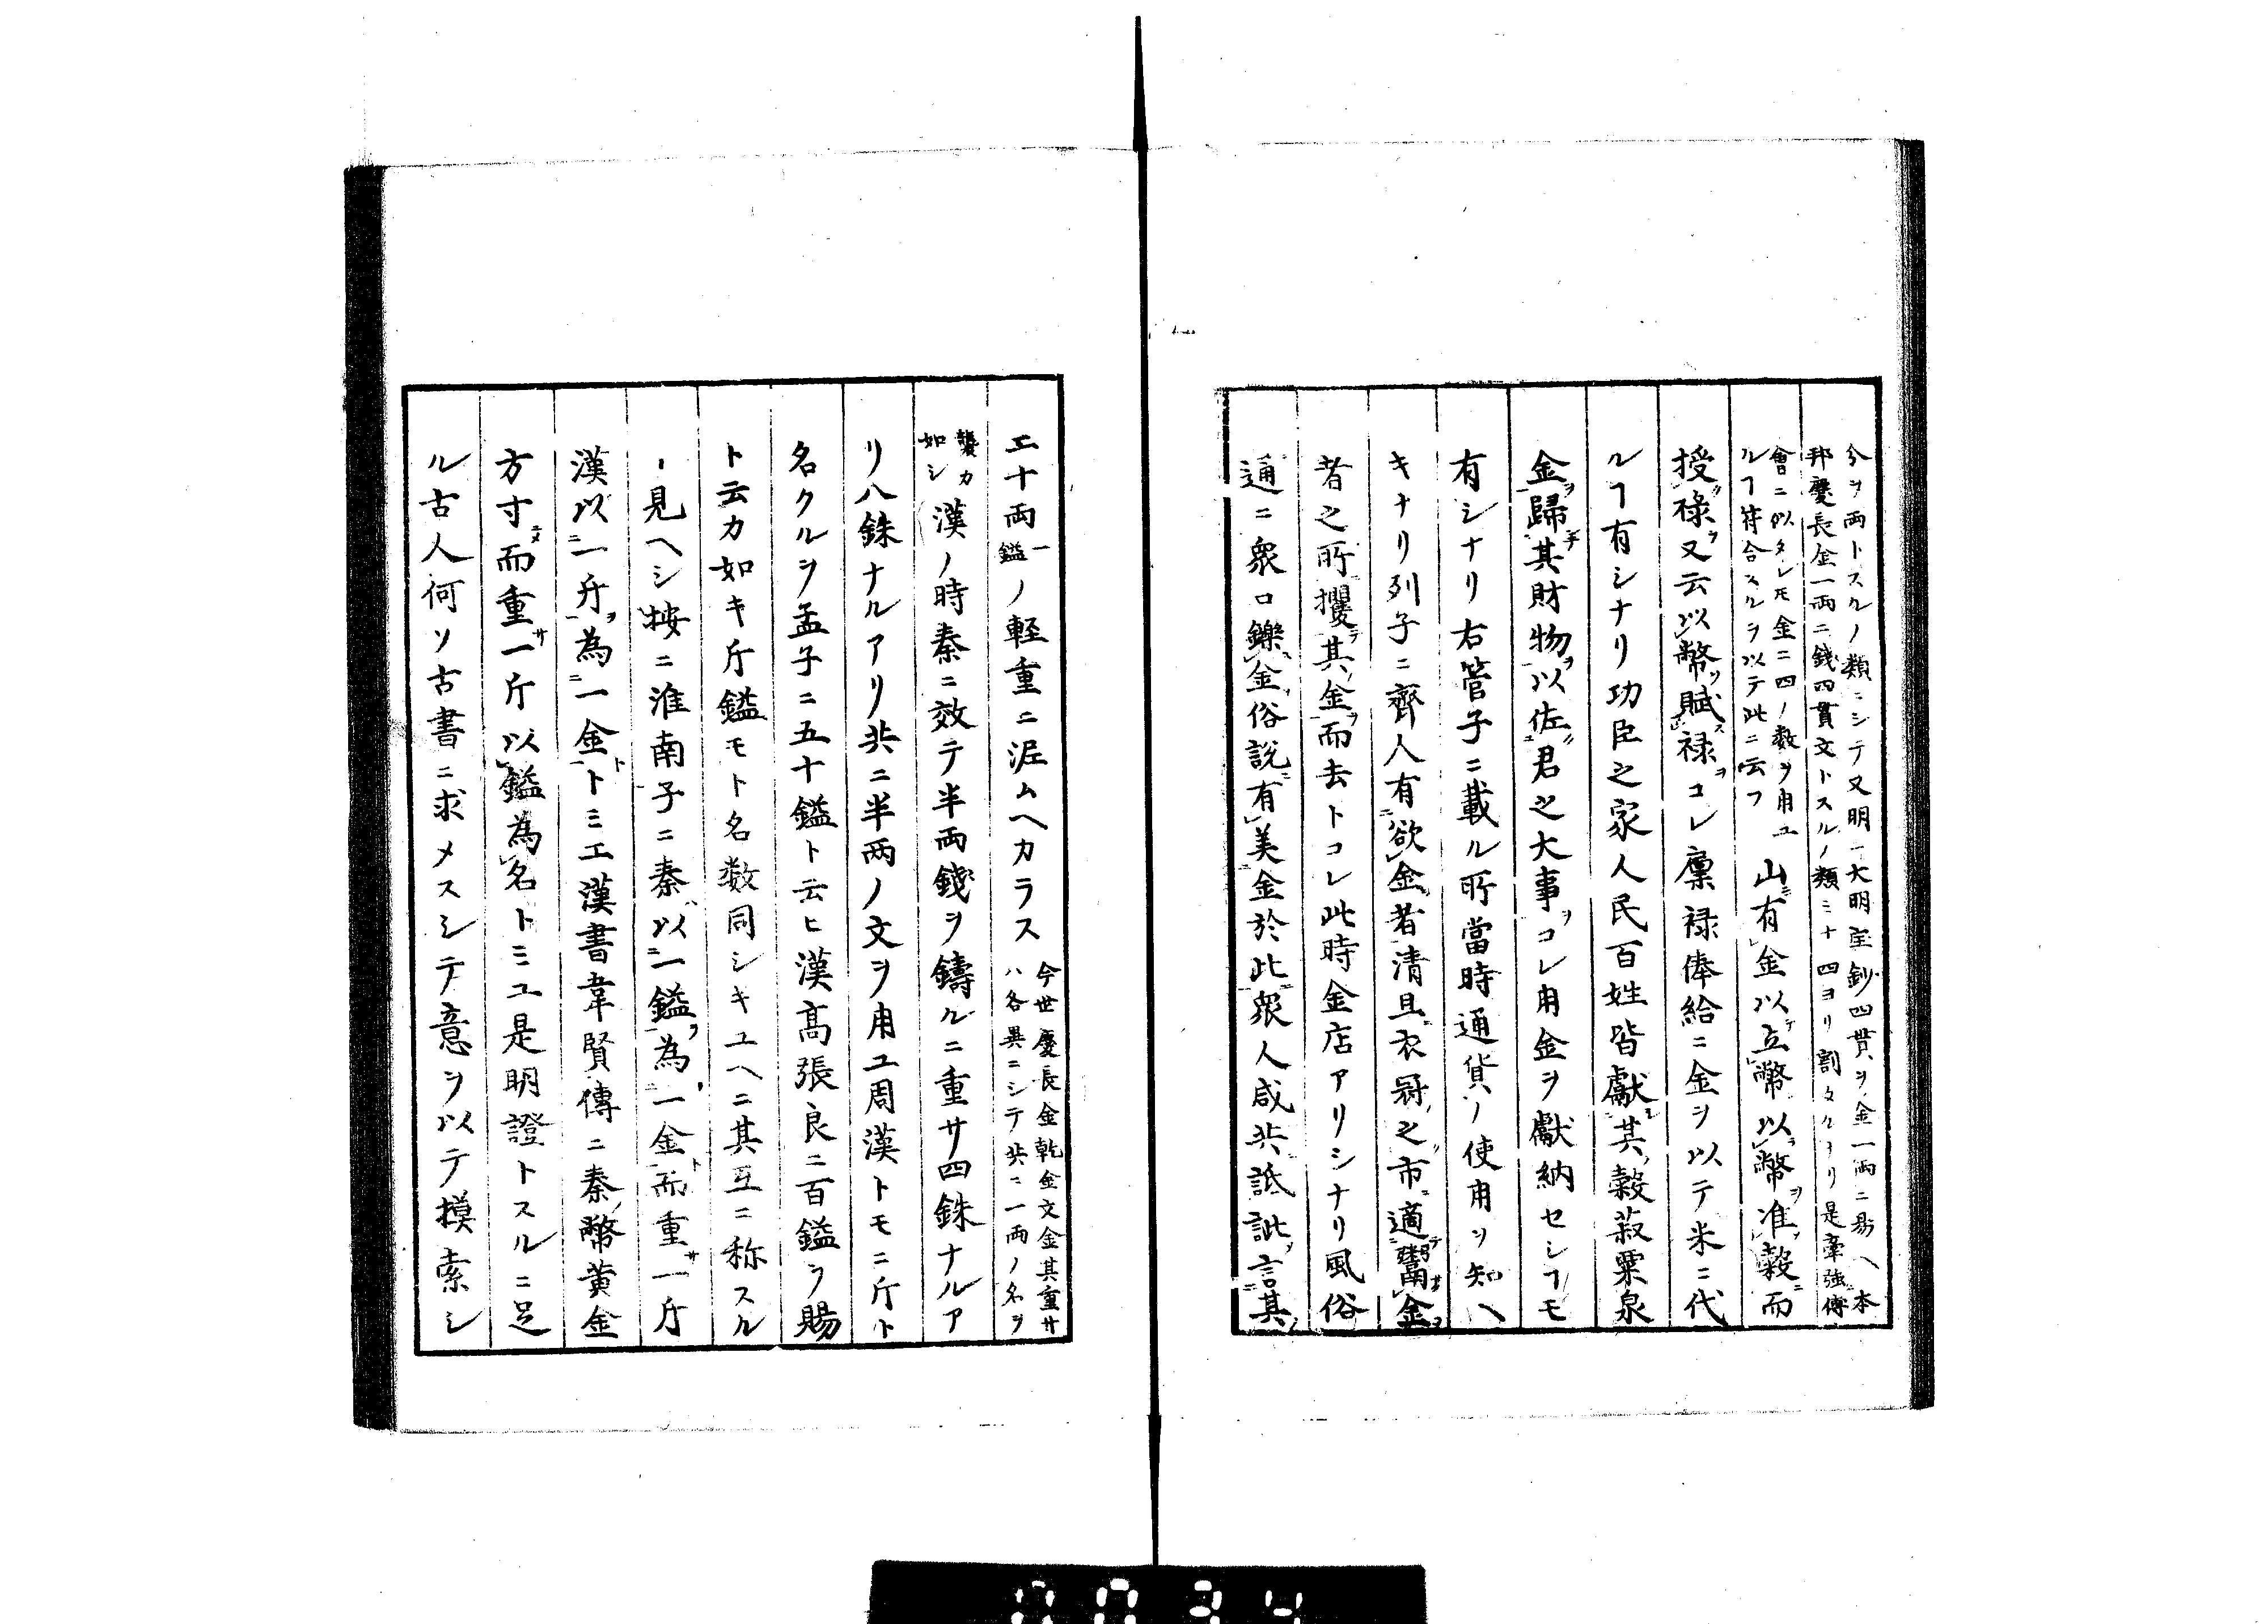 今ヲ両トスルノ類ニシテ又明一大明宝鈔四貫ヲ金一両ニ易ヘ本
邦慶長金一両ニ銭四貫文トスルノ類ミナ四ヨリ割タクヨリ是牽強傳
會ニ以タレ𪜈金ニ四ノ数ヲ用ユ
ルヿ符合スルヲ以テ此ニ云フ
山有金以立幣以幣准穀而
授禄又云以幣賦禄コレ廩禄俸給ニ金ヲ以テ米ニ代
ルヿ有シナリ功臣之家人民百姓皆獻其穀菽粟泉
金歸其財物以佐君之大事コレ用金ヲ獻納セシヿモ
有シナリ右管子ニ載ル所當時通貨ノ使用ヲ知ヘ
キナリ列子ニ齊人有欲金者清旦衣冠之市適鬻金
者之所攫其金而去トコレ此時金店アリシナリ風俗
通ニ衆口鑠金俗説有美金於此衆人咸共詆訿言其
二十両一鎰ノ軽重ニ泥ムヘカラス
今世慶長金乾金文金其重サ
ハ各異ニシテ共ニ一両ノ名ヲ
襲カ
如シ
漢ノ時秦ニ效テ半両錢ヲ鑄ルニ重サ四銖ナルア
リ八銖ナルアリ共ニ半両ノ文ヲ用ユ周漢トモニ斤ト
名クルヲ孟子ニ五十鎰ト云ヒ漢髙張良ニ百鎰ヲ賜
ト云カ如キ斤鎰モト名数同シキユヘニ其互ニ称スル
ヿ見ヘシ按ニ淮南子ニ秦以一鎰為一金而重一斤
漢以一斤為一金トミエ漢書韋賢傳ニ秦幣黄金
方寸而重一斤以鎰為名トミユ是明證トスルニ足
ル古人何ソ古書ニ求メスシテ意ヲ以テ摸索シ